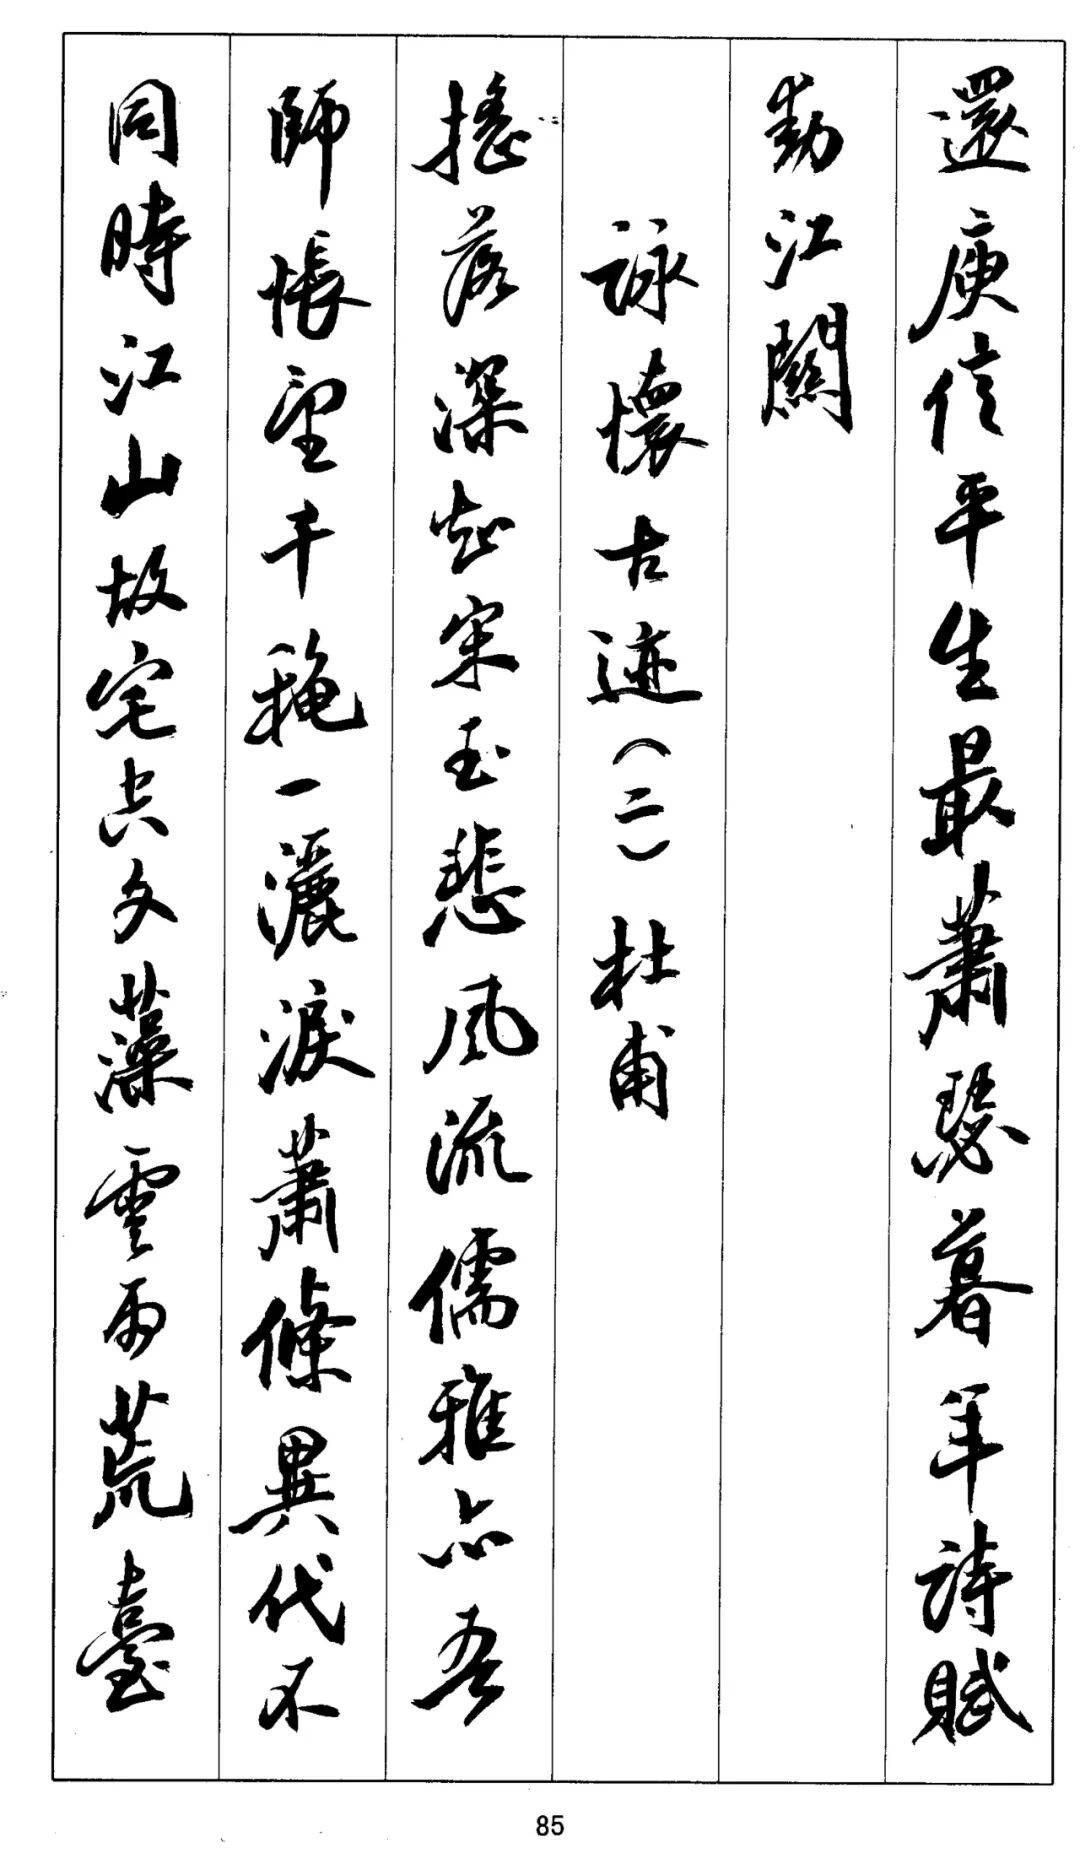 還庾信平生最蕭瑟暮年詩賦
動江關
詠懷古迹（二）杜甫
搖落深知宋玉悲風流儒雅亦吾
師悵望千穐一灑淚蕭條異代不
同時江山故宅空文藻雲雨荒臺
85